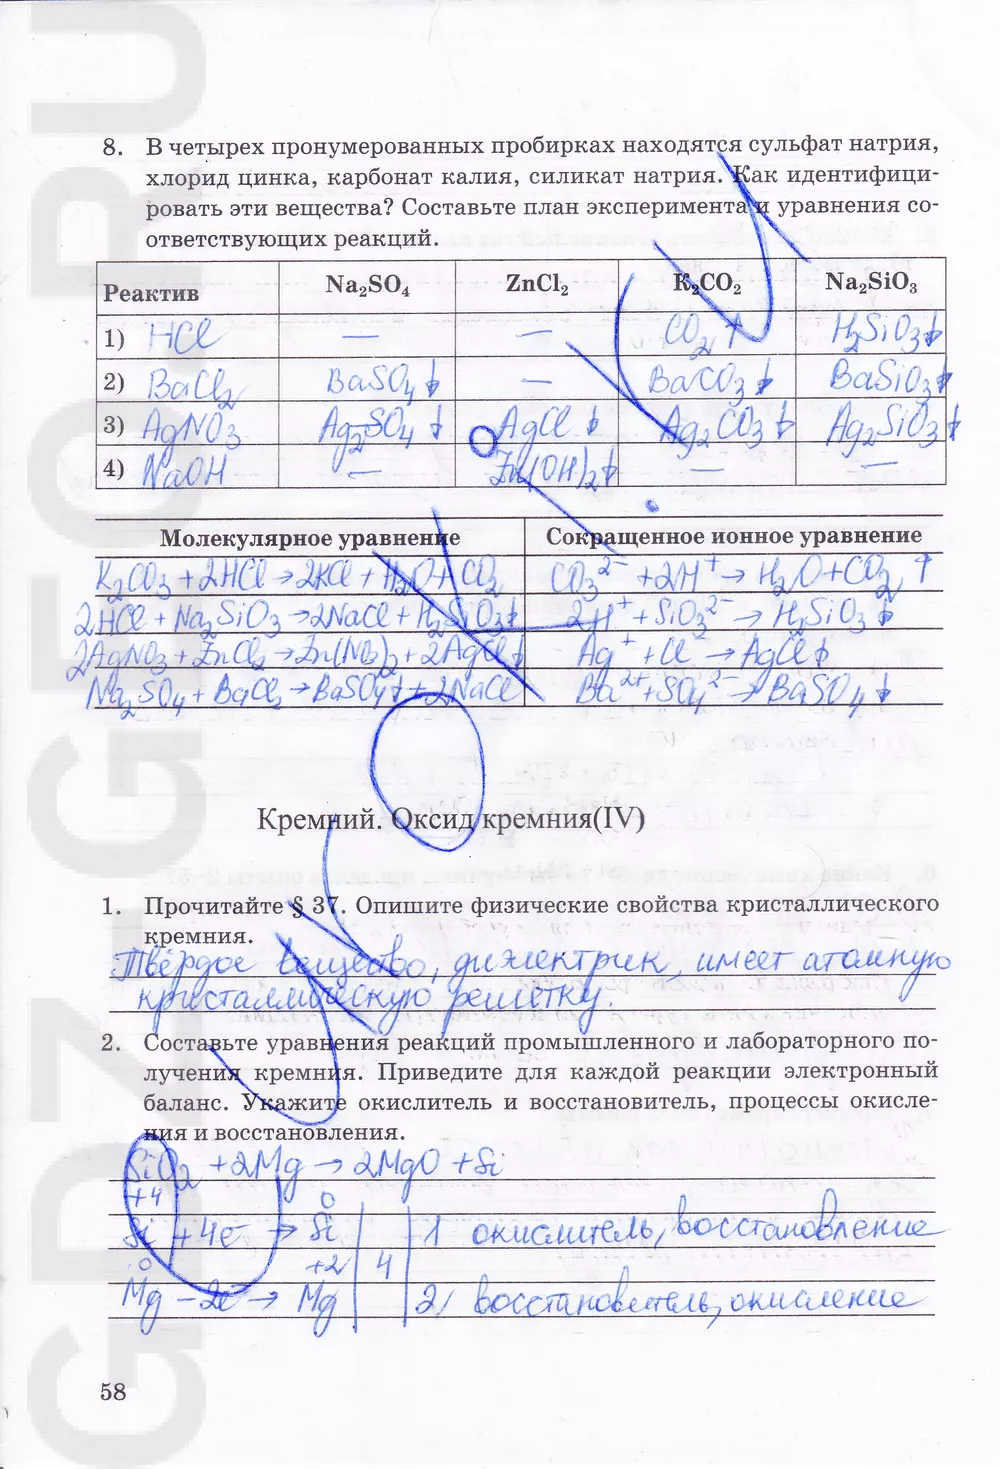 8. В четырех пронумерованных пробирках находятся сульфат натрия,
хлорид цинка, карбонат калия, силикат натрия. Как идентифици-
ровать эти вещества? Составьте план эксперимента и уравнения со-
ответствующих реакций.
Реактив Na₂SO₄ ZnCl₂ K₂CO₂ Na₂SiO₃
1) HCl — — CO₂↑ H₂SiO₃↓
2) BaCl₂ BaSO₄↓ — BaCO₃↓ BaSiO₃↓
3) AgNO₃ Ag₂SO₄↓ AgCl↓ Ag₂CO₃↓ Ag₂SiO₃↓
4) NaOH — Zn(OH)₂↓ — —
Молекулярное уравнение Сокращенное ионное уравнение
K₂CO₃ + 2HCl → 2KCl + H₂O + CO₂ CO₃²⁻ + 2H⁺ → H₂O + CO₂↑
2HCl + Na₂SiO₃ → 2NaCl + H₂SiO₃↓ 2H⁺ + SiO₃²⁻ → H₂SiO₃↓
2AgNO₃ + ZnCl₂ → Zn(NO₃)₂ + 2AgCl↓ Ag⁺ + Cl⁻ → AgCl↓
Na₂SO₄ + BaCl₂ → BaSO₄↓ + 2NaCl Ba²⁺ + SO₄²⁻ → BaSO₄↓
Кремний. Оксид кремния(IV)
1. Прочитайте § 37. Опишите физические свойства кристаллического
кремния.
Твёрдое вещество, диэлектрик, имеет атомную
кристаллическую решетку.
2. Составьте уравнения реакций промышленного и лабораторного по-
лучения кремния. Приведите для каждой реакции электронный
баланс. Укажите окислитель и восстановитель, процессы окисле-
ния и восстановления.
SiO₂ + 2Mg → 2MgO + Si
+4 0
Si + 4e⁻ → Si 1 окислитель, восстановление
0 +2 4
Mg – 2e⁻ → Mg 2 восстановитель, окисление
58
GDZ-GFO.RU